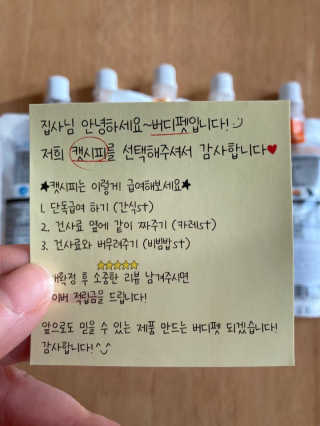 집사님 안녕하세요~버디펫입니다!
저희 캣시피를 선택해주셔서 감사합니다♥
★캣시피는 이렇게 급여해보세요★
1. 단독급여 하기 (간식st)
2. 건사료 옆에 같이 짜주기 (카레st)
3. 건사료와 버무려주기 (비빔밥st)
★★★★★
후 소중한 리뷰 남겨주시면
적립금을 드립니다!
앞으로도 믿을 수 있는 제품 만드는 버디펫 되겠습니다!
감사합니다!^^